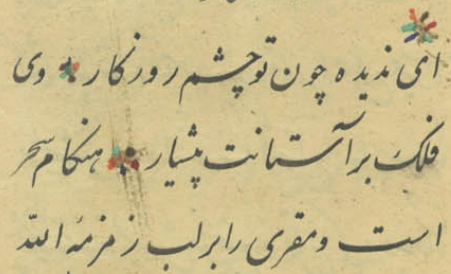 ای ندیده چون تو چشم روزکار وی
فلک بر آستانت پیشیار هنکام سحر
است و مقری را بر لب زمزمهٔ الله